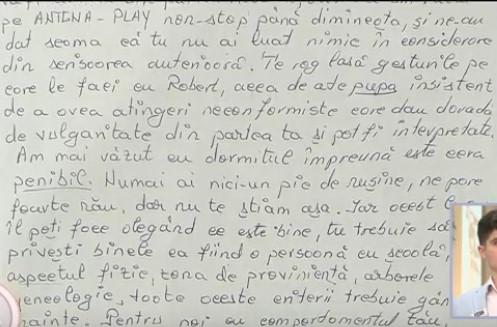 pe ANTENA-PLAY non-stop până dimineața, și ne-am
dat seama că tu nu ai luat nimic în considerare
din scrisoarea anterioară. Te rog lasă gesturile pe
care le faci cu Robert, aceea de a te pupa insistent
de a avea atingeri neconformiste care dau dovada
de vulgaritate din partea ta și pot fi interpretate.
Am mai văzut cu dormitul împreună este ceva
penibil. Numai ai nici-un pic de rușine, ne pare
foarte rău, dar nu te știam așa. Iar acest
îl poți face alegând ce este bine, tu trebuie să
privești binele ca fiind o persoană cu școală,
aspectul fizic, zona de proviniență, arborele
geneologic, toate aceste criterii trebuie gân
nainte. Pentru noi cu compordomentul tău,